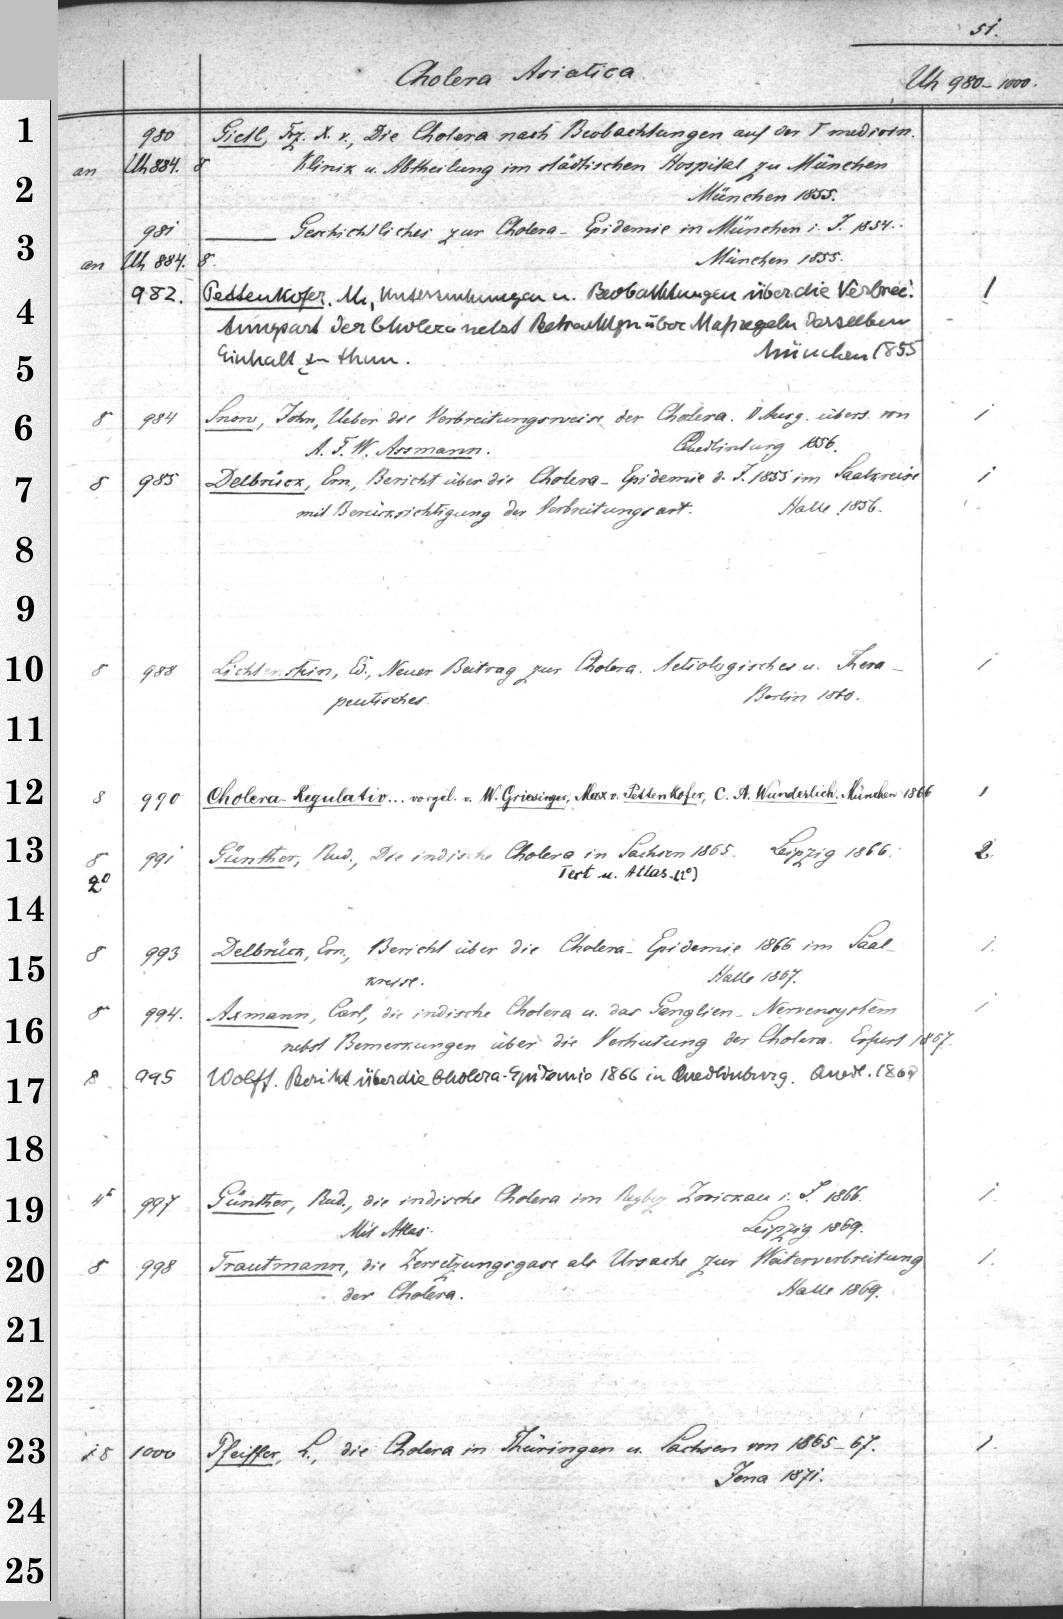 51.
Cholera Asiatica
Uh 980-1000.
1
980 Gietl, Frz. X. v., Die Cholera nach Beobachtungen auf der I medicin.
an Uh 884. 8 Klinik u. Abtheilung im städtischen Hospital zu München
2
München 1855.
981 ——— Geschichtliches zur Cholera-Epidemie in München i. J. 1854.
3
an Uh 884. 8. München 1855.
982. Pettenkofer, M., Untersuchungen u. Beobachtungen über die Verbrei- 1
4
tungsart der Cholera nebst Betrachtgn über Maßregeln derselben
Einhalt zu thun. München 1855
5
8 984 Snow, John, Ueber die Verbreitungsweise der Cholera. Ausg. übers. von 1
6
A. F. W. Assmann. Quedlinburg 1856.
7
8 985 Delbrück, Ern., Bericht über die Cholera-Epidemie d. J. 1855 im Saalkreise 1
mit Berücksichtigung der Verbreitungsart. Halle 1856.
8
9
10
8 988 Lichtenstein, Ed., Neuer Beitrag zur Cholera. Aetiologisches u. Thera- 1
peutisches. Berlin 1860.
11
12
8 990 Cholera-Regulativ... vorgel. v. W. Griesinger, Max v. Pettenkofer, C. A. Wunderlich. München 1866 1
13
8 991 Günther, Rud., Die indische Cholera in Sachsen 1865. Leipzig 1866. 2.
2° Text u. Atlas (2°)
14
8 993 Delbrück, Ern., Bericht über die Cholera-Epidemie 1866 im Saal- 1.
15
kreise. Halle 1867.
8 994. Axmann, Carl, die indische Cholera u. das Ganglien-Nervensystem 1
16
nebst Bemerkungen über die Verhütung der Cholera. Erfurt 1867.
17
8 995 Wolff. Bericht über die Cholera-Epidemie 1866 in Quedlinburg. Quedl.
18
19
4° 997 Günther, Rud., die indische Cholera im Regbez Zwickau i. J. 1866. 1.
Mit Atlas. Leipzig 1869.
20
8 998 Trautmann, die Zersetzungsgase als Ursache zur Weiterverbreitung 1.
der Cholera. Halle 1869.
21
22
23
8 1000 Pfeiffer, L., die Cholera in Thüringen u. Sachsen von 1865-67. 1.
Jena 1871.
24
25